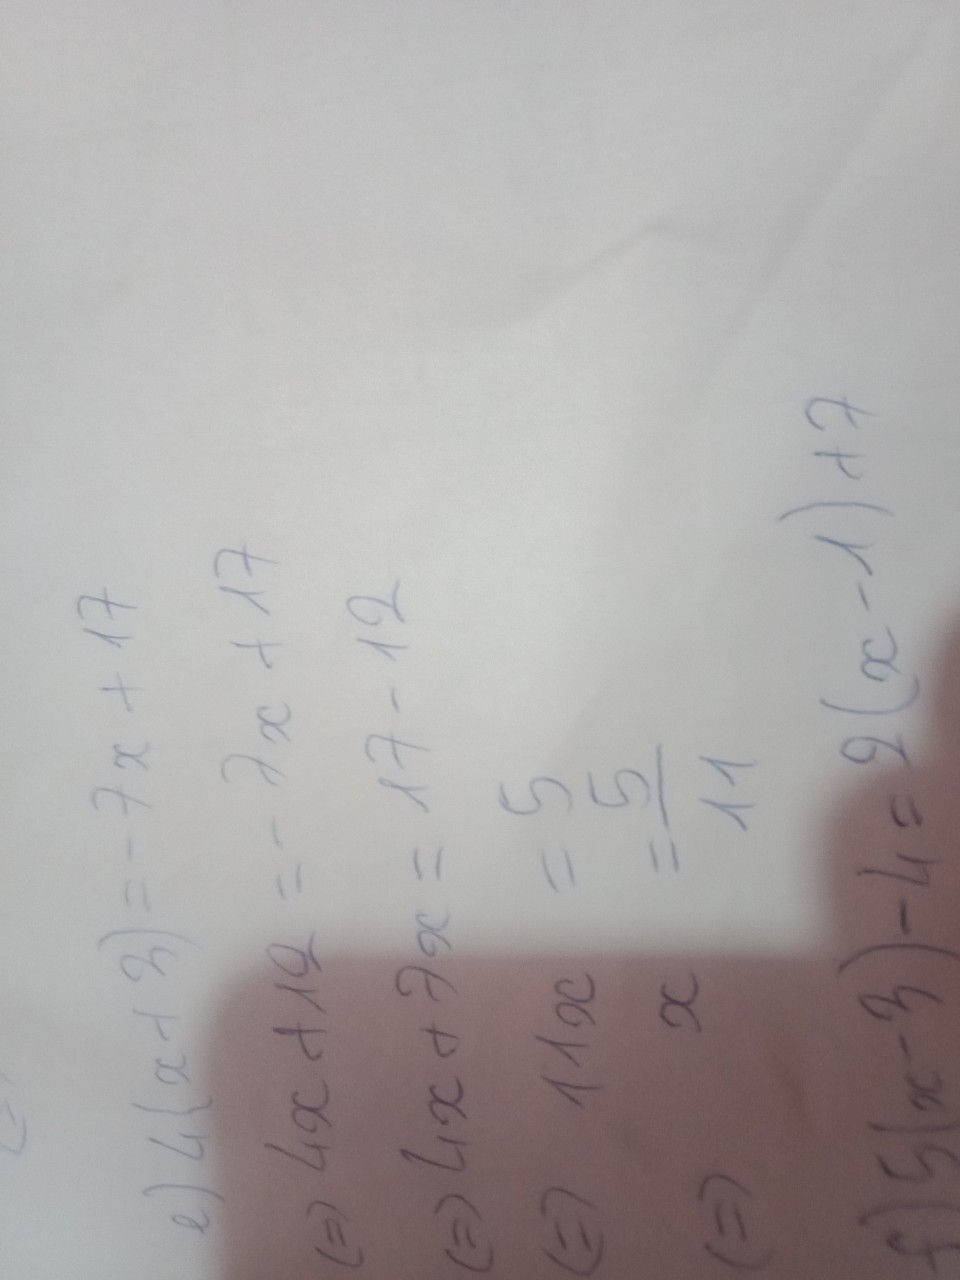 e) 4(x+3) = -7x + 17
(=) 4x + 12 = -7x + 17
(=) 4x + 7x = 17 - 12
(=) 11x = 5
(=) x = 5/11
f) 5(x-3) - 4 = 2(x-1) + 7